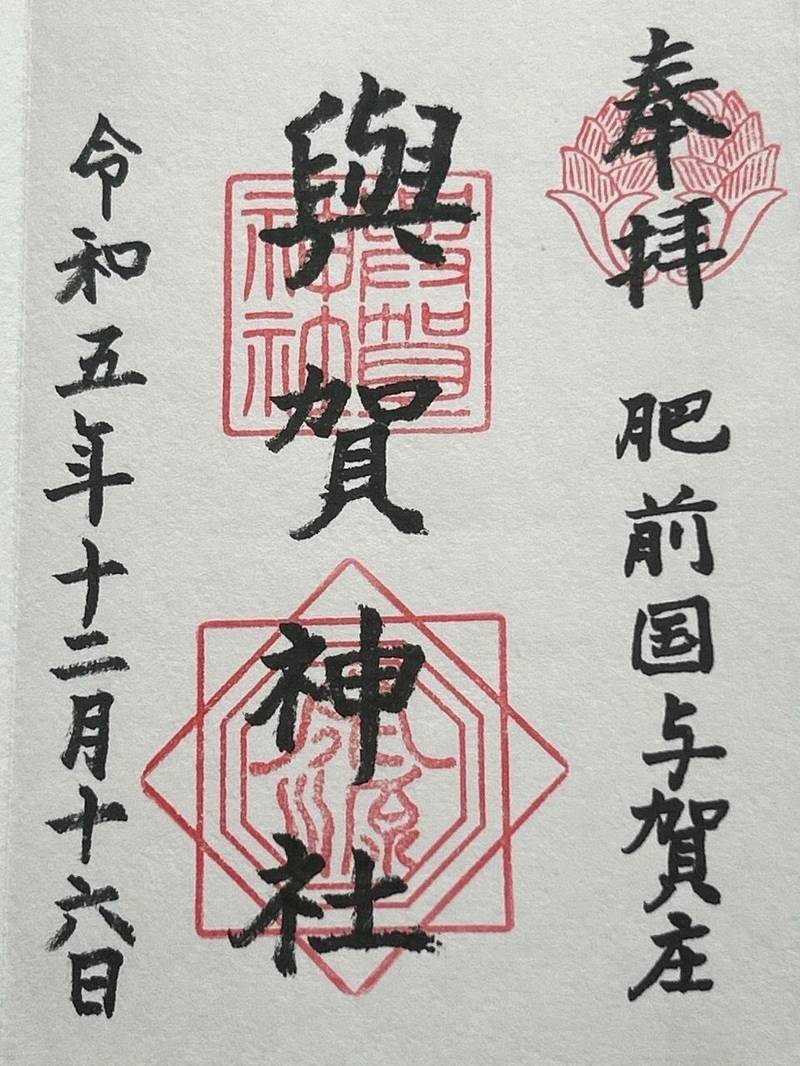 奉拝
肥前国与賀庄
與賀神社
令和五年十二月十六日